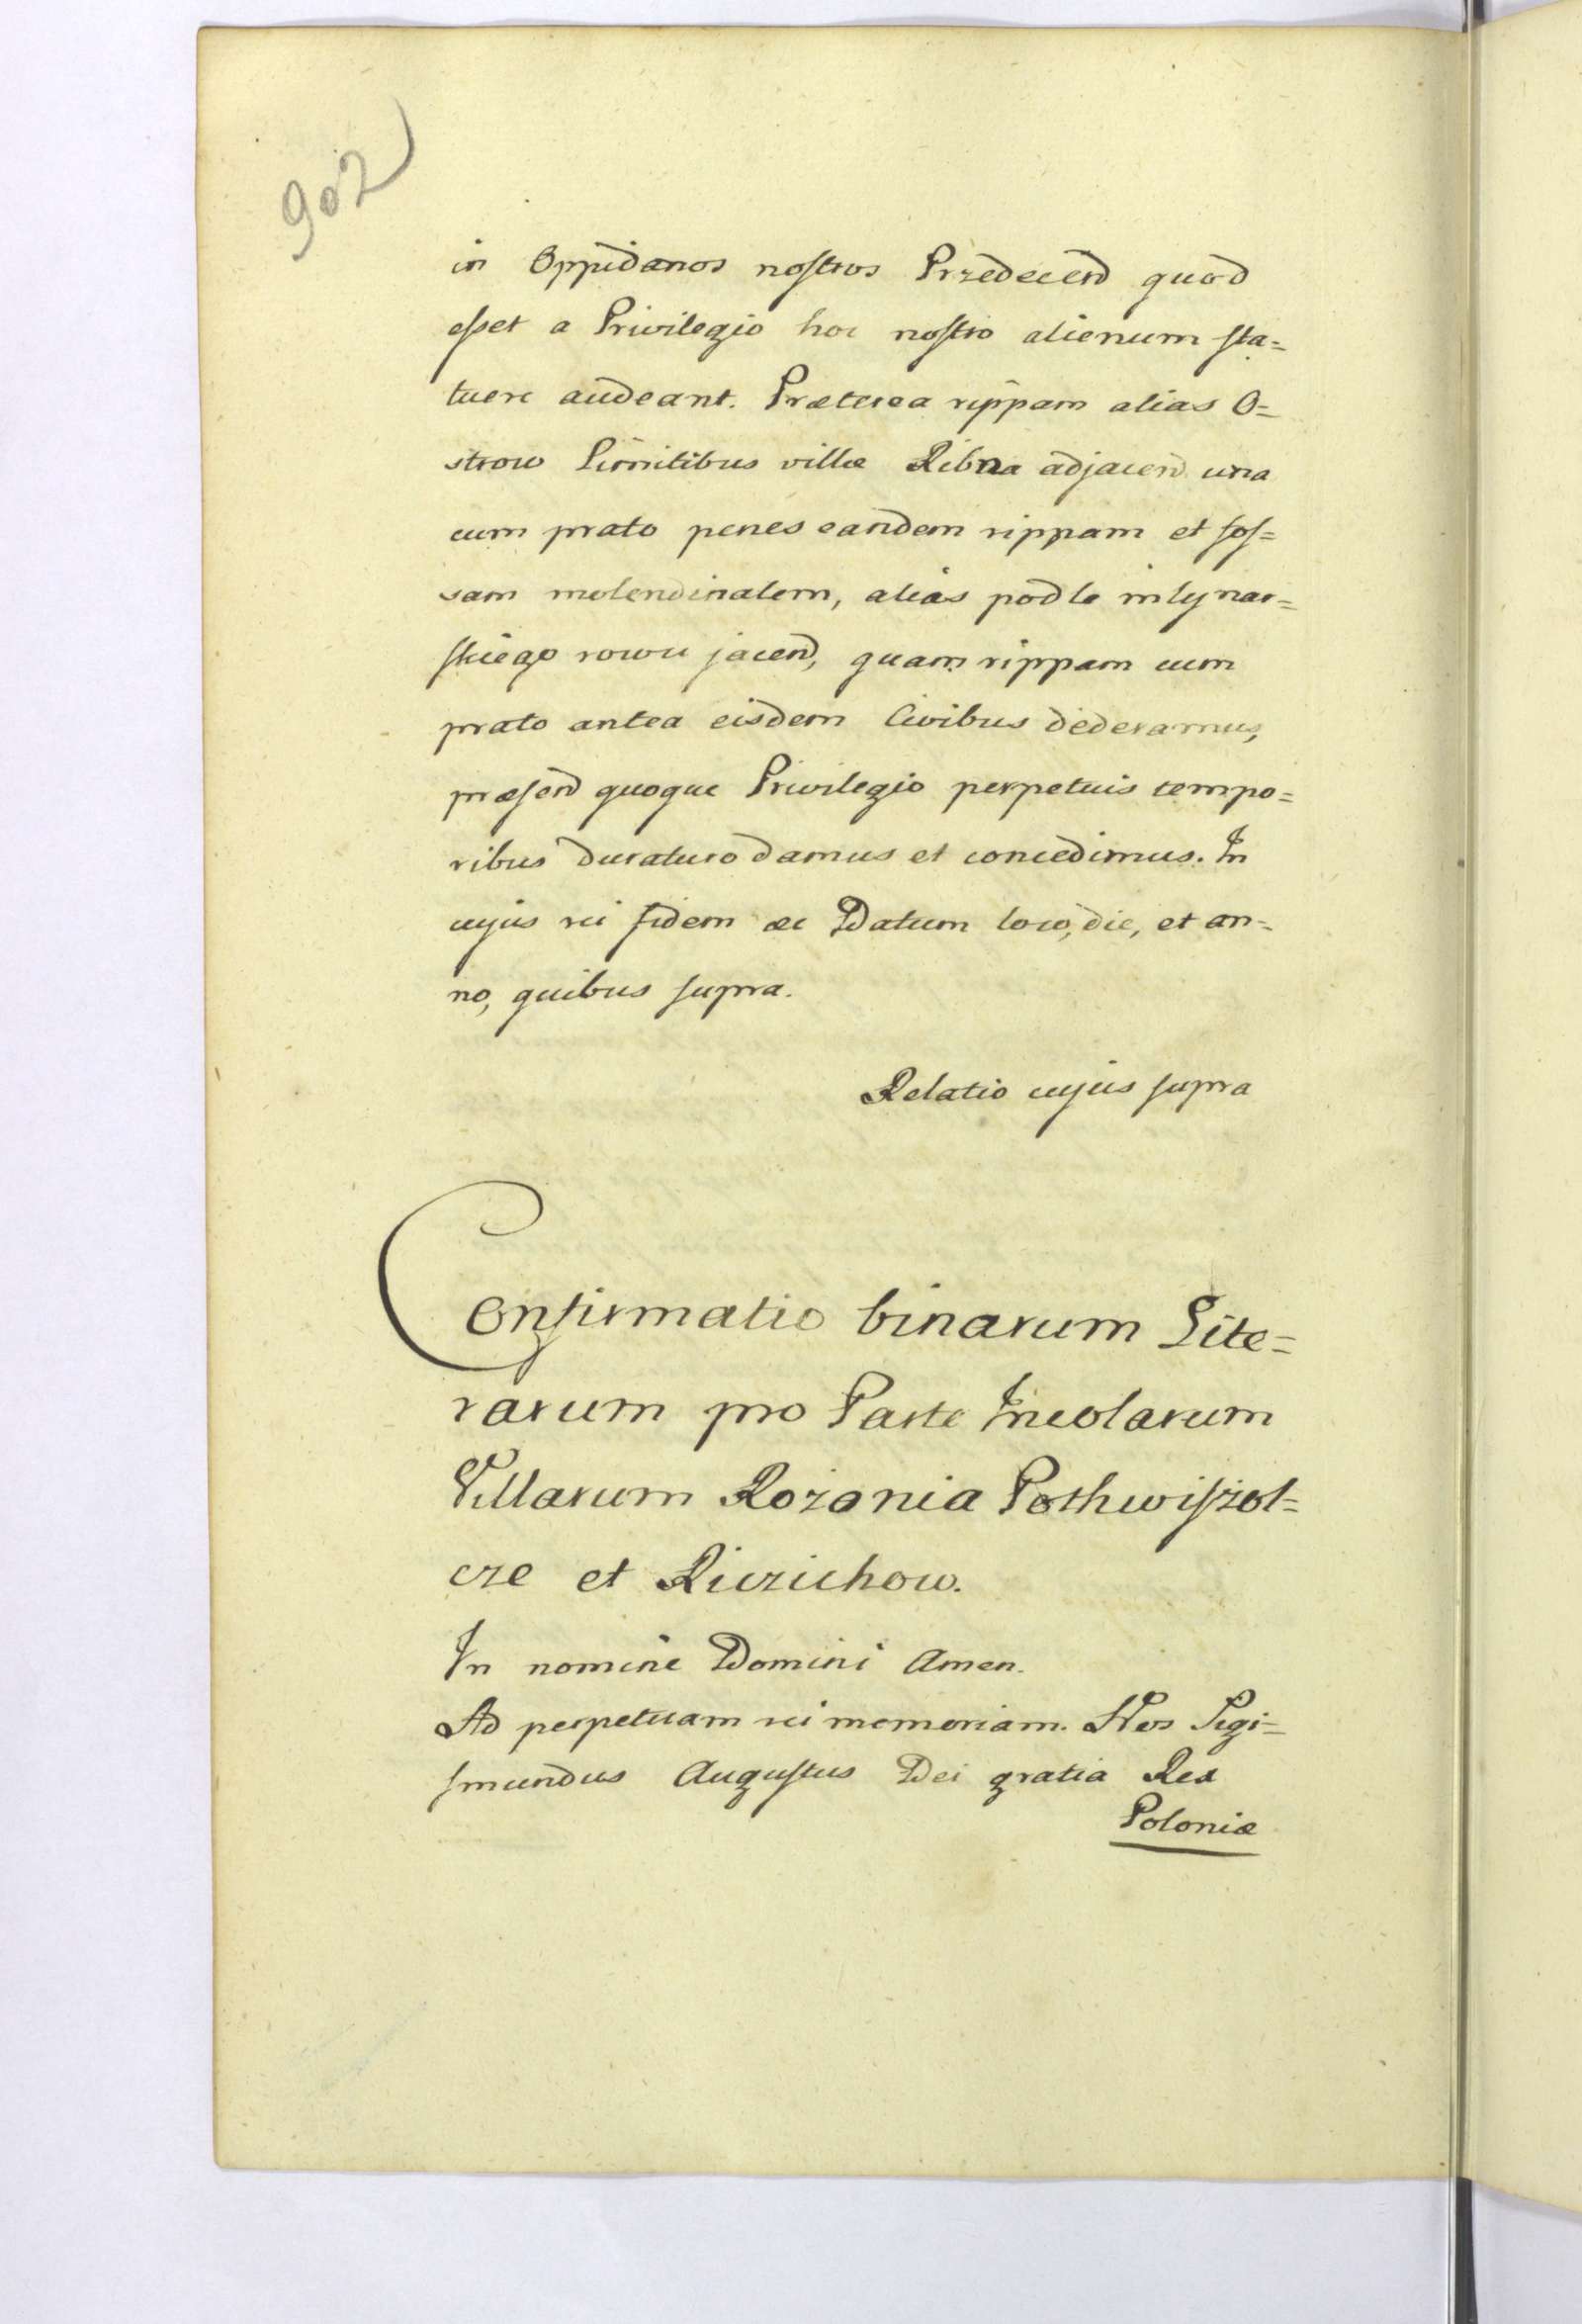 902
in Oppidanos nostros Przedecend quod
esset a Privilegio hoc nostro alienum sta=
tuere audeant. Præterea rippam alias O=
strow Limitibus villæ Ribna adjacend una
cum prato penes eandem rippam et fos=
sam molendinalem, alias podle mlynar=
skiego rowu jacend, quam rippam cum
prato antea eisdem Civibus dederamus,
præsend quoque Privilegio perpetuis tempo=
ribus duraturo damus et concedimus. In
cujus rei fidem &c Datum loco, die, et an=
no, quibus supra.
Relatio cujus supra
Confirmatio binarum Lite=
rarum pro Parte Incolarum
Villarum Rozania Pothwiszol=
cze et Riczichow.
In nomine Domini Amen.
Ad perpetuam rei memoriam. Nos Sigi=
smundus Augustus Dei gratia Rex
Poloniæ